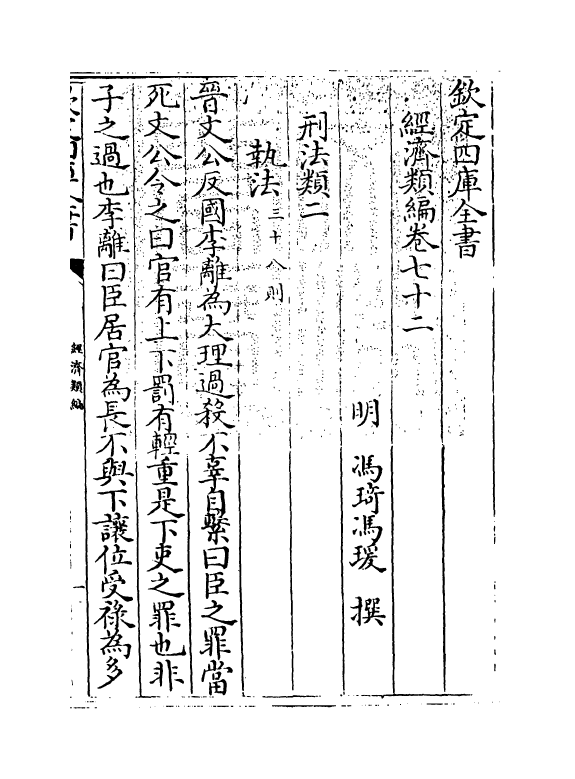 欽定四庫全書
經濟類編卷七十二
明 馮琦馮瑗 撰
刑法類二
執法三十八則
晉文公反國李離為大理過殺不辜自繫曰臣之罪當
死文公令之曰官有上下罰有輕重是下吏之罪也非
子之過也李離曰臣居官為長不與下讓位受祿為多
經濟類編
一